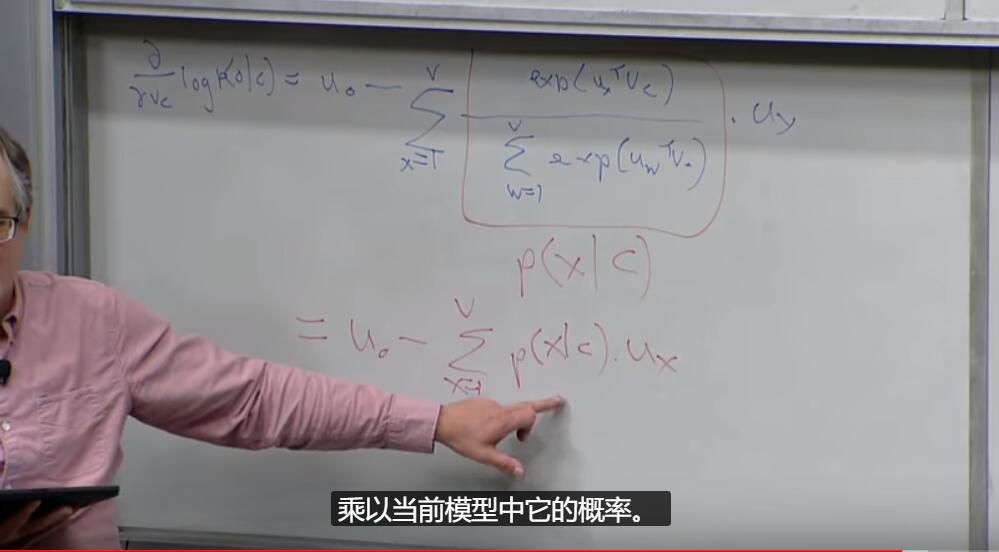 ∂/∂v_c log p(o|c) = u_o − ∑_{x=1}^{V} exp(u_x^T v_c) / ∑_{w=1}^{V} exp(u_w^T v_c) · u_x
p(x|c)
= u_o − ∑_{x=1}^{V} p(x|c) · u_x
乘以当前模型中它的概率。